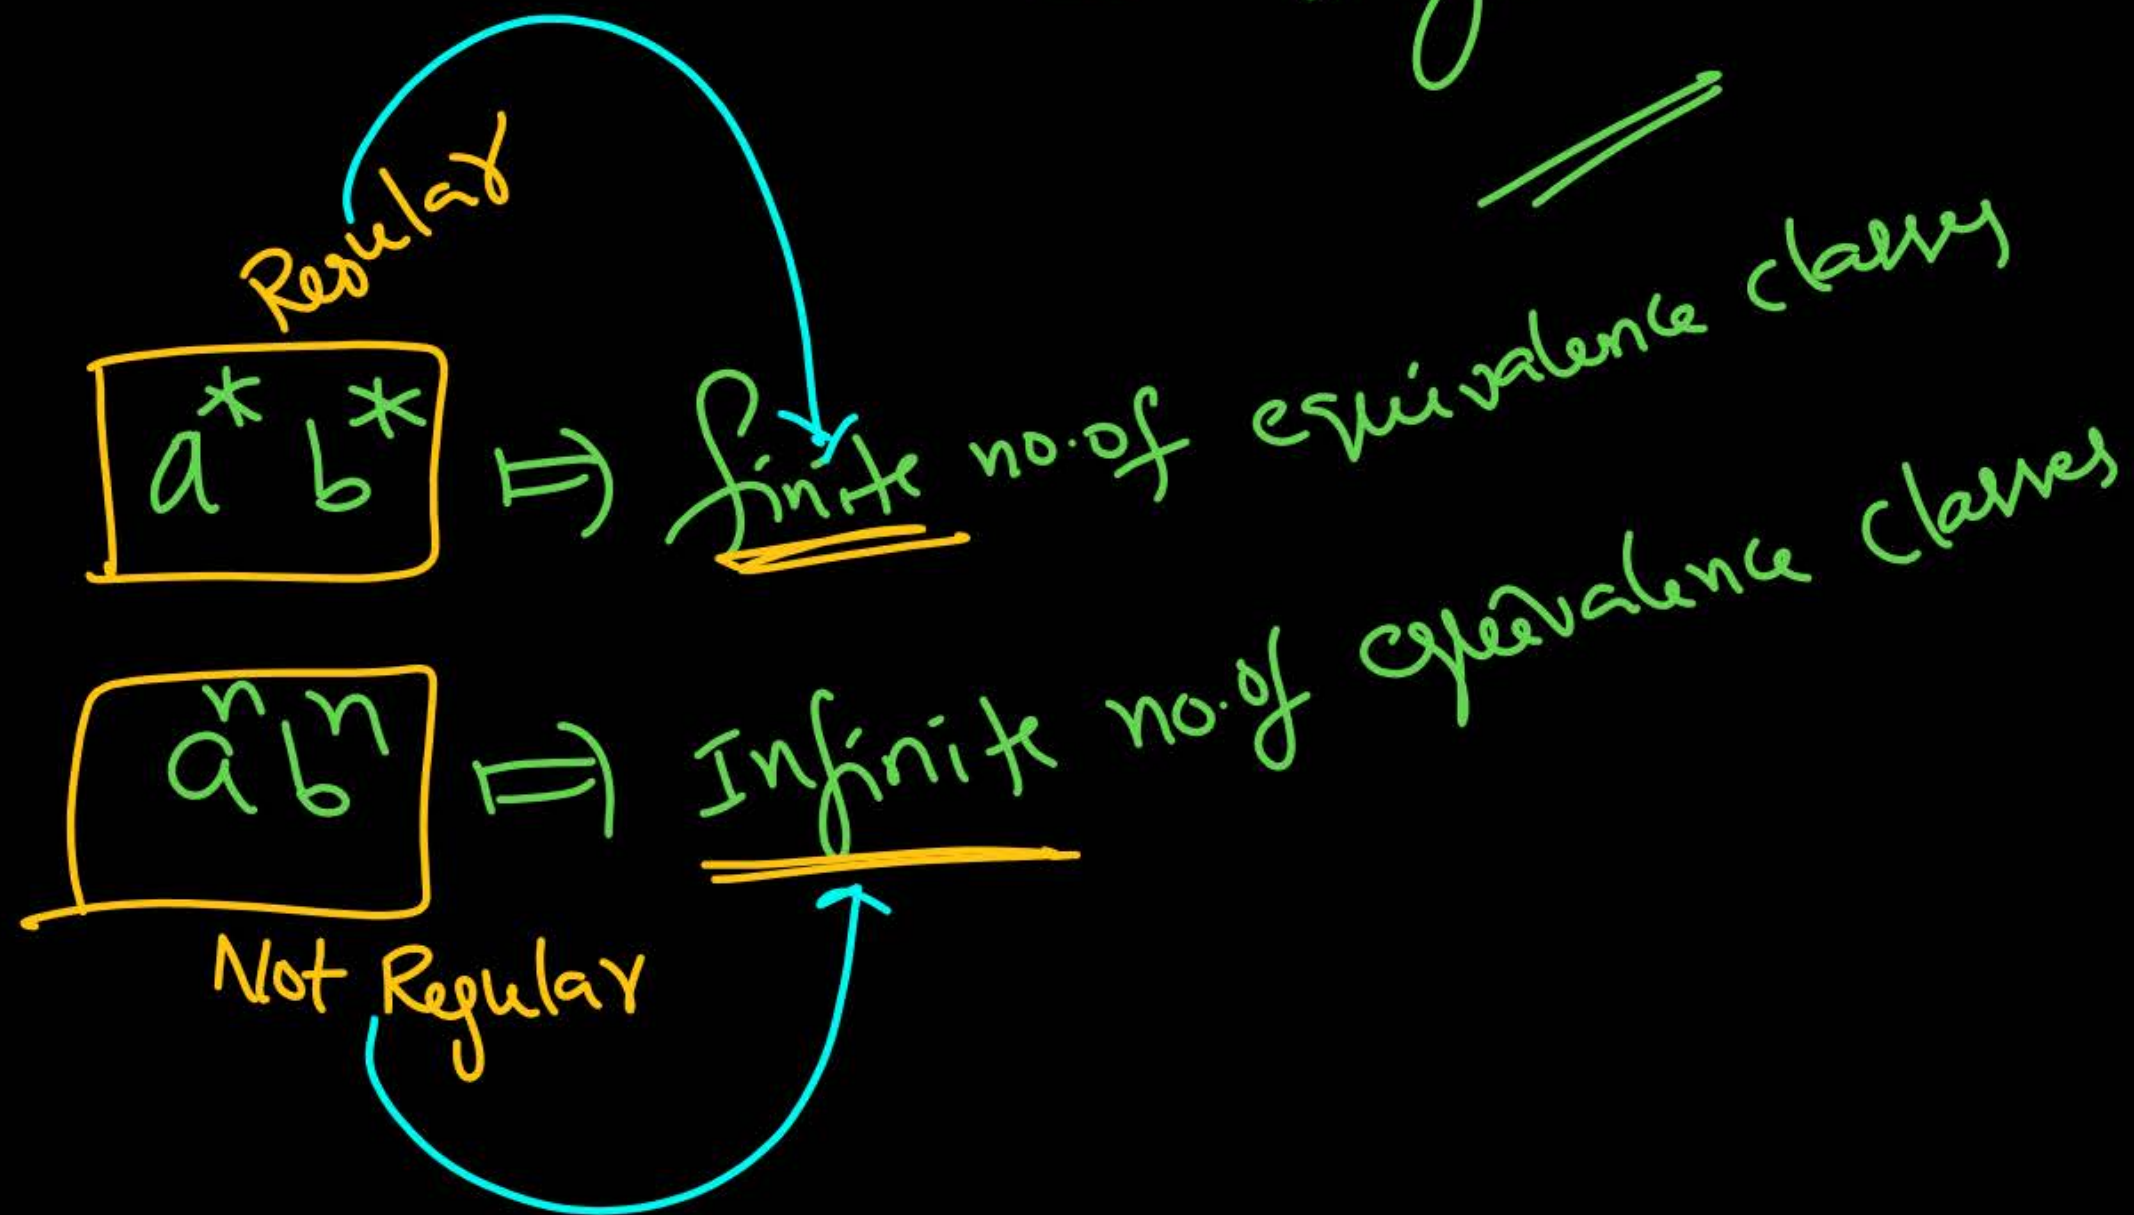 Regular
a* b* ⇒ finite no. of equivalence classes
aⁿbⁿ ⇒ Infinite no. of equivalence classes
Not Regular